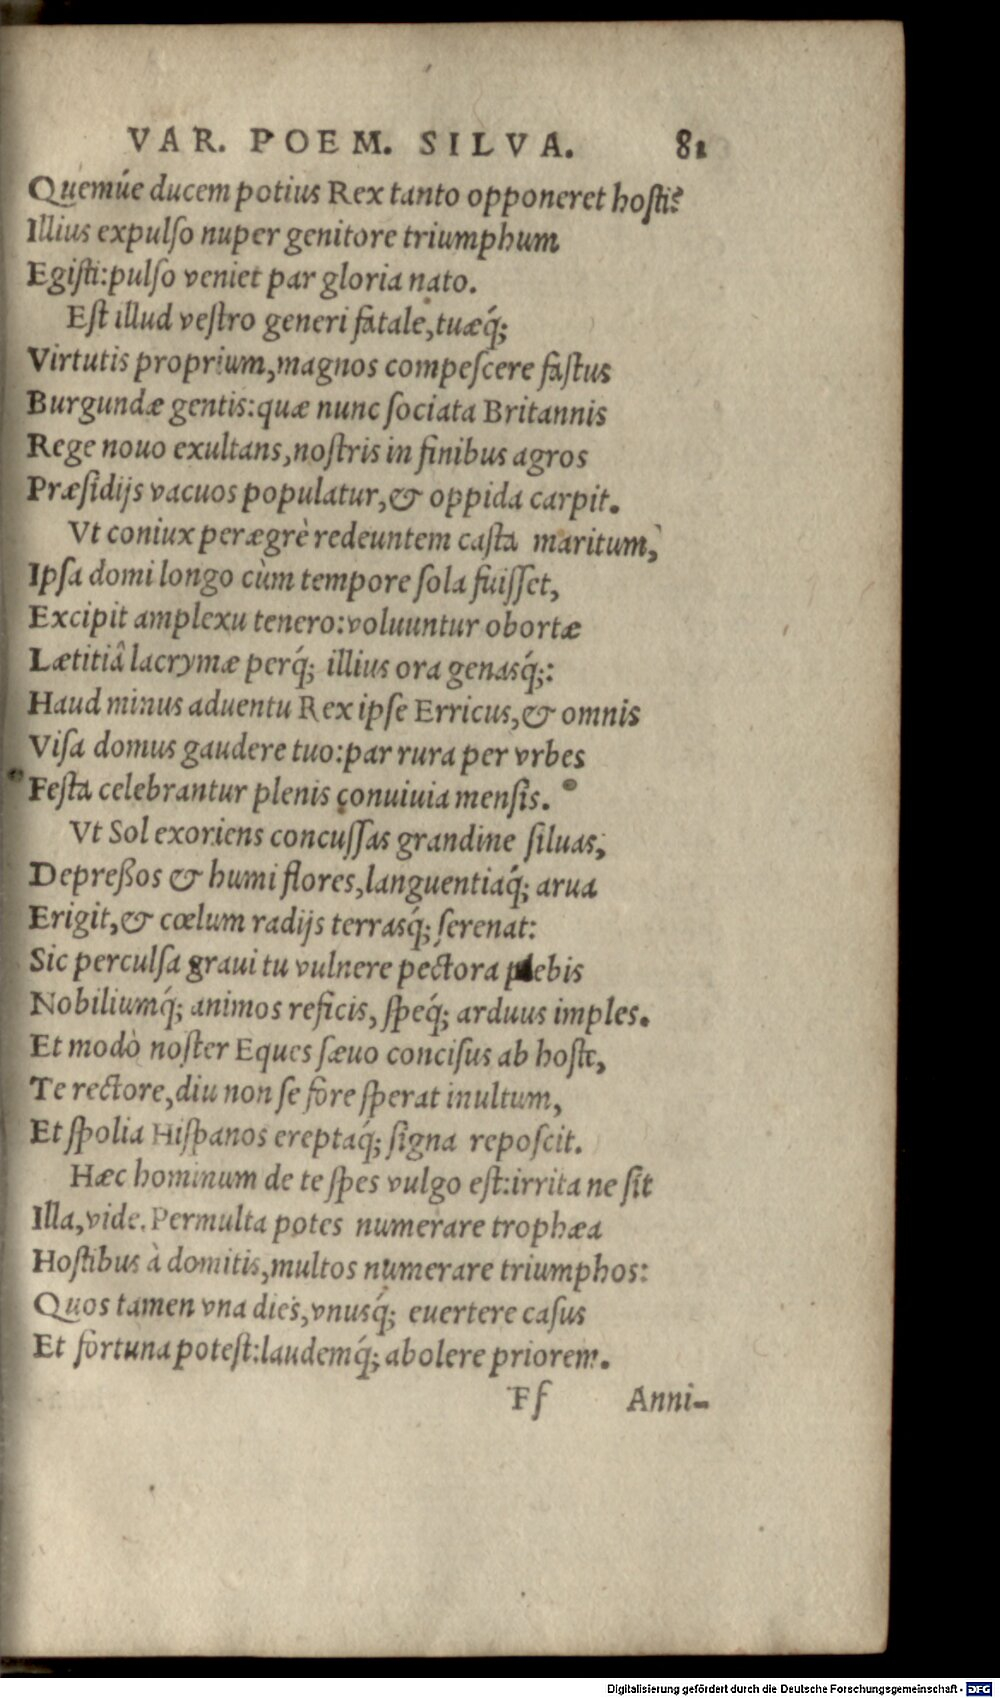 VAR. POEM. SILVA. 81
Quemúe ducem potius Rex tanto opponeret hosti?
Illius expulſo nuper genitore triumphum
Egiſti:pulſo veniet par gloria nato.
Eſt illud veſtro generi fatale,tuæq́;
Virtutis proprium,magnos compeſcere faſtus
Burgundæ gentis:quæ nunc ſociata Britannis
Rege nouo exultans,noſtris in finibus agros
Præſidijs vacuos populatur,& oppida carpit.
Vt coniux peræGrè redeuntem caſta maritum,
Ipſa domi longo cùm tempore ſola fuiſſet,
Excipit amplexu tenero:voluuntur obortæ
Lætitiâ lacrymæ perq́; illius ora genasq́;:
Haud minus aduentu Rex ipſe Erricus,& omnis
Viſa domus gaudere tuo:par rura per vrbes
Feſta celebrantur plenis conuiuia menſis.
Vt Sol exoriens concuſſas grandine ſiluas,
Depreßos & humi flores,languentiaq́; arua
Erigit,& cœlum radijs terrasq́; ſerenat:
Sic perculſa graui tu vulnere pectora plebis
Nobiliumq́; animos reficis, ſpeq́; arduus imples.
Et modò noſter Eques ſæuo conciſus ab hoſte,
Te rectore,diu non ſe fore ſperat inultum,
Et ſpolia Hiſpanos ereptaq́; ſigna repoſcit.
Hæc hominum de te ſpes vulgo eſt:irrita ne ſit
Illa,vide.Permulta potes numerare trophæa
Hoſtibus à domitis,multos numerare triumphos:
Quos tamen vna dies,vnusq́; euertere caſus
Et fortuna poteſt:laudemq́; abolere priorem.
Ff Anni-
Digitalisierung gefördert durch die Deutsche Forschungsgemeinschaft - DFG